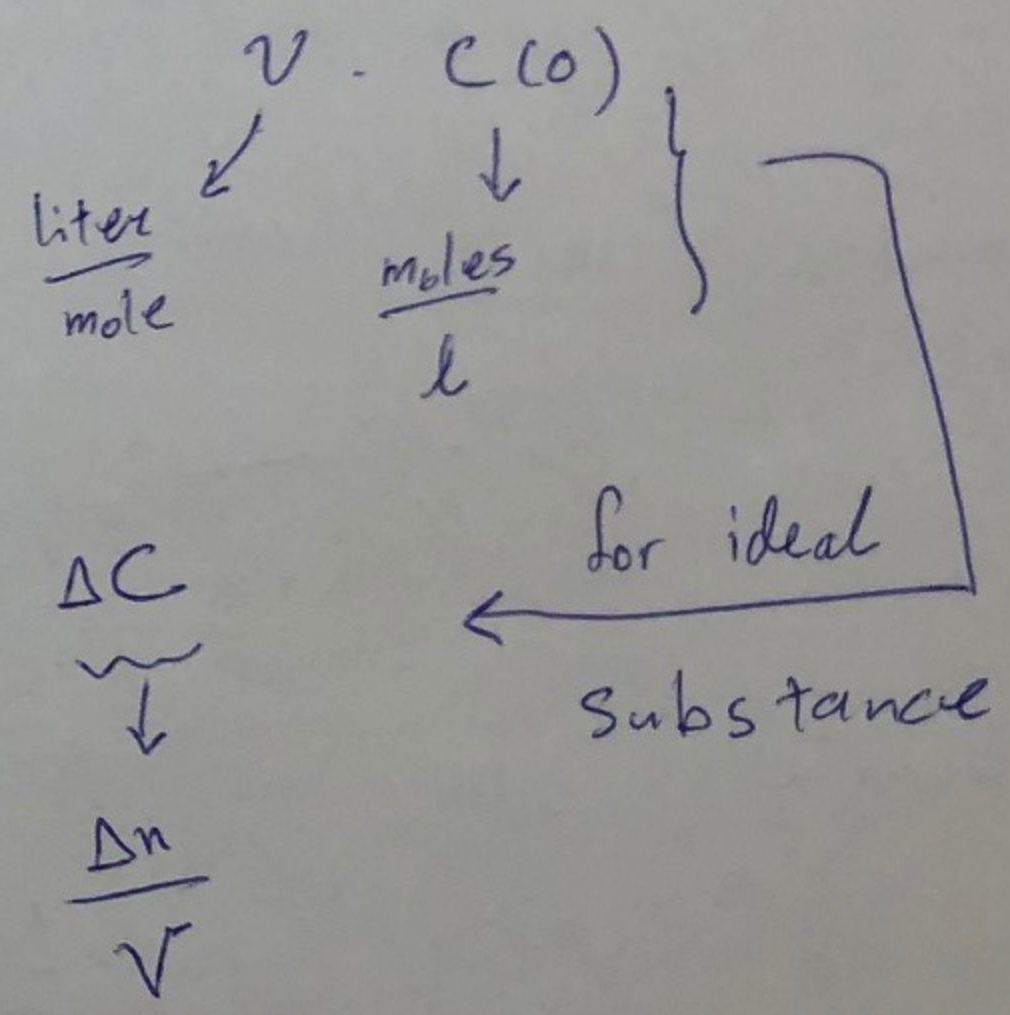 V . C(0)
liter
mole
moles
l
for ideal
ΔC
substance
Δn
V